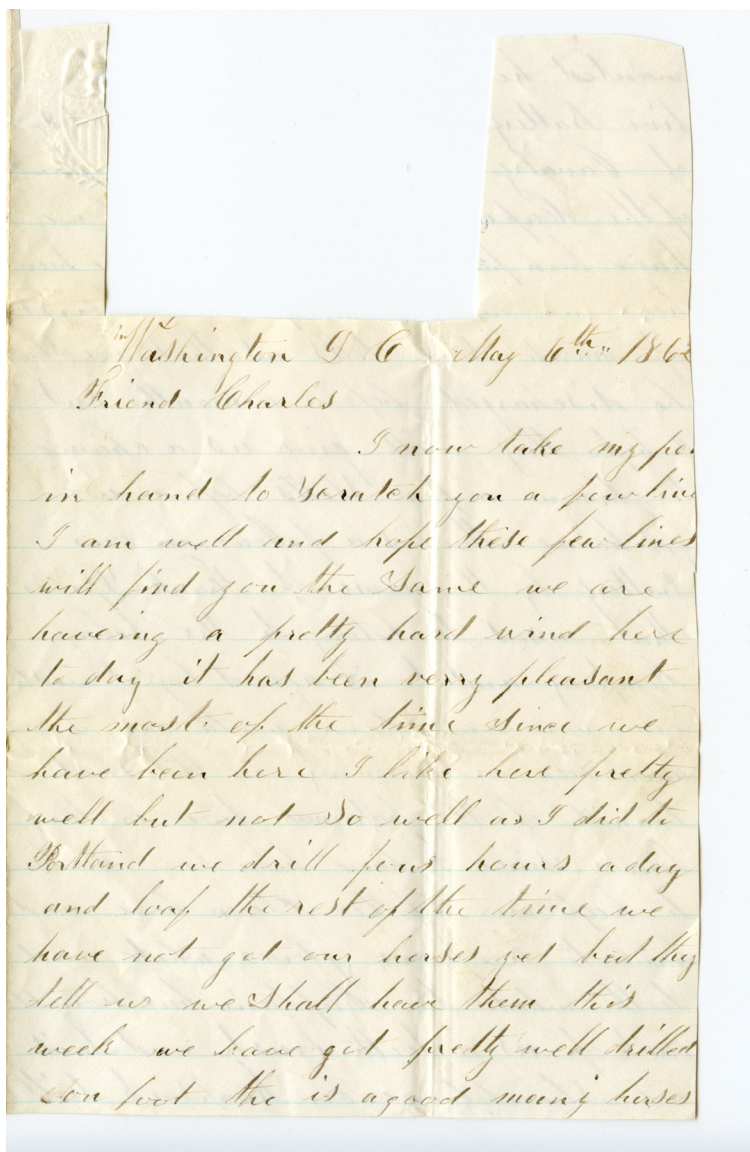 Washington D C May 6th 1862
Friend Charles
I now take my pen
in hand to Scratch you a few line
I am well and hope these few lines
will find you the Same we are
havering a pretty hard wind here
to day it has been verry pleasant
the most of the time Since we
have been here I like here pretty
well but not So well as I did to
Portland we drill four hours a day
and loaf the rest of the time we
have not got our horses yet but they
tell us we Shall have them this
week we have got pretty well drilled
on foot the is a good meny horses